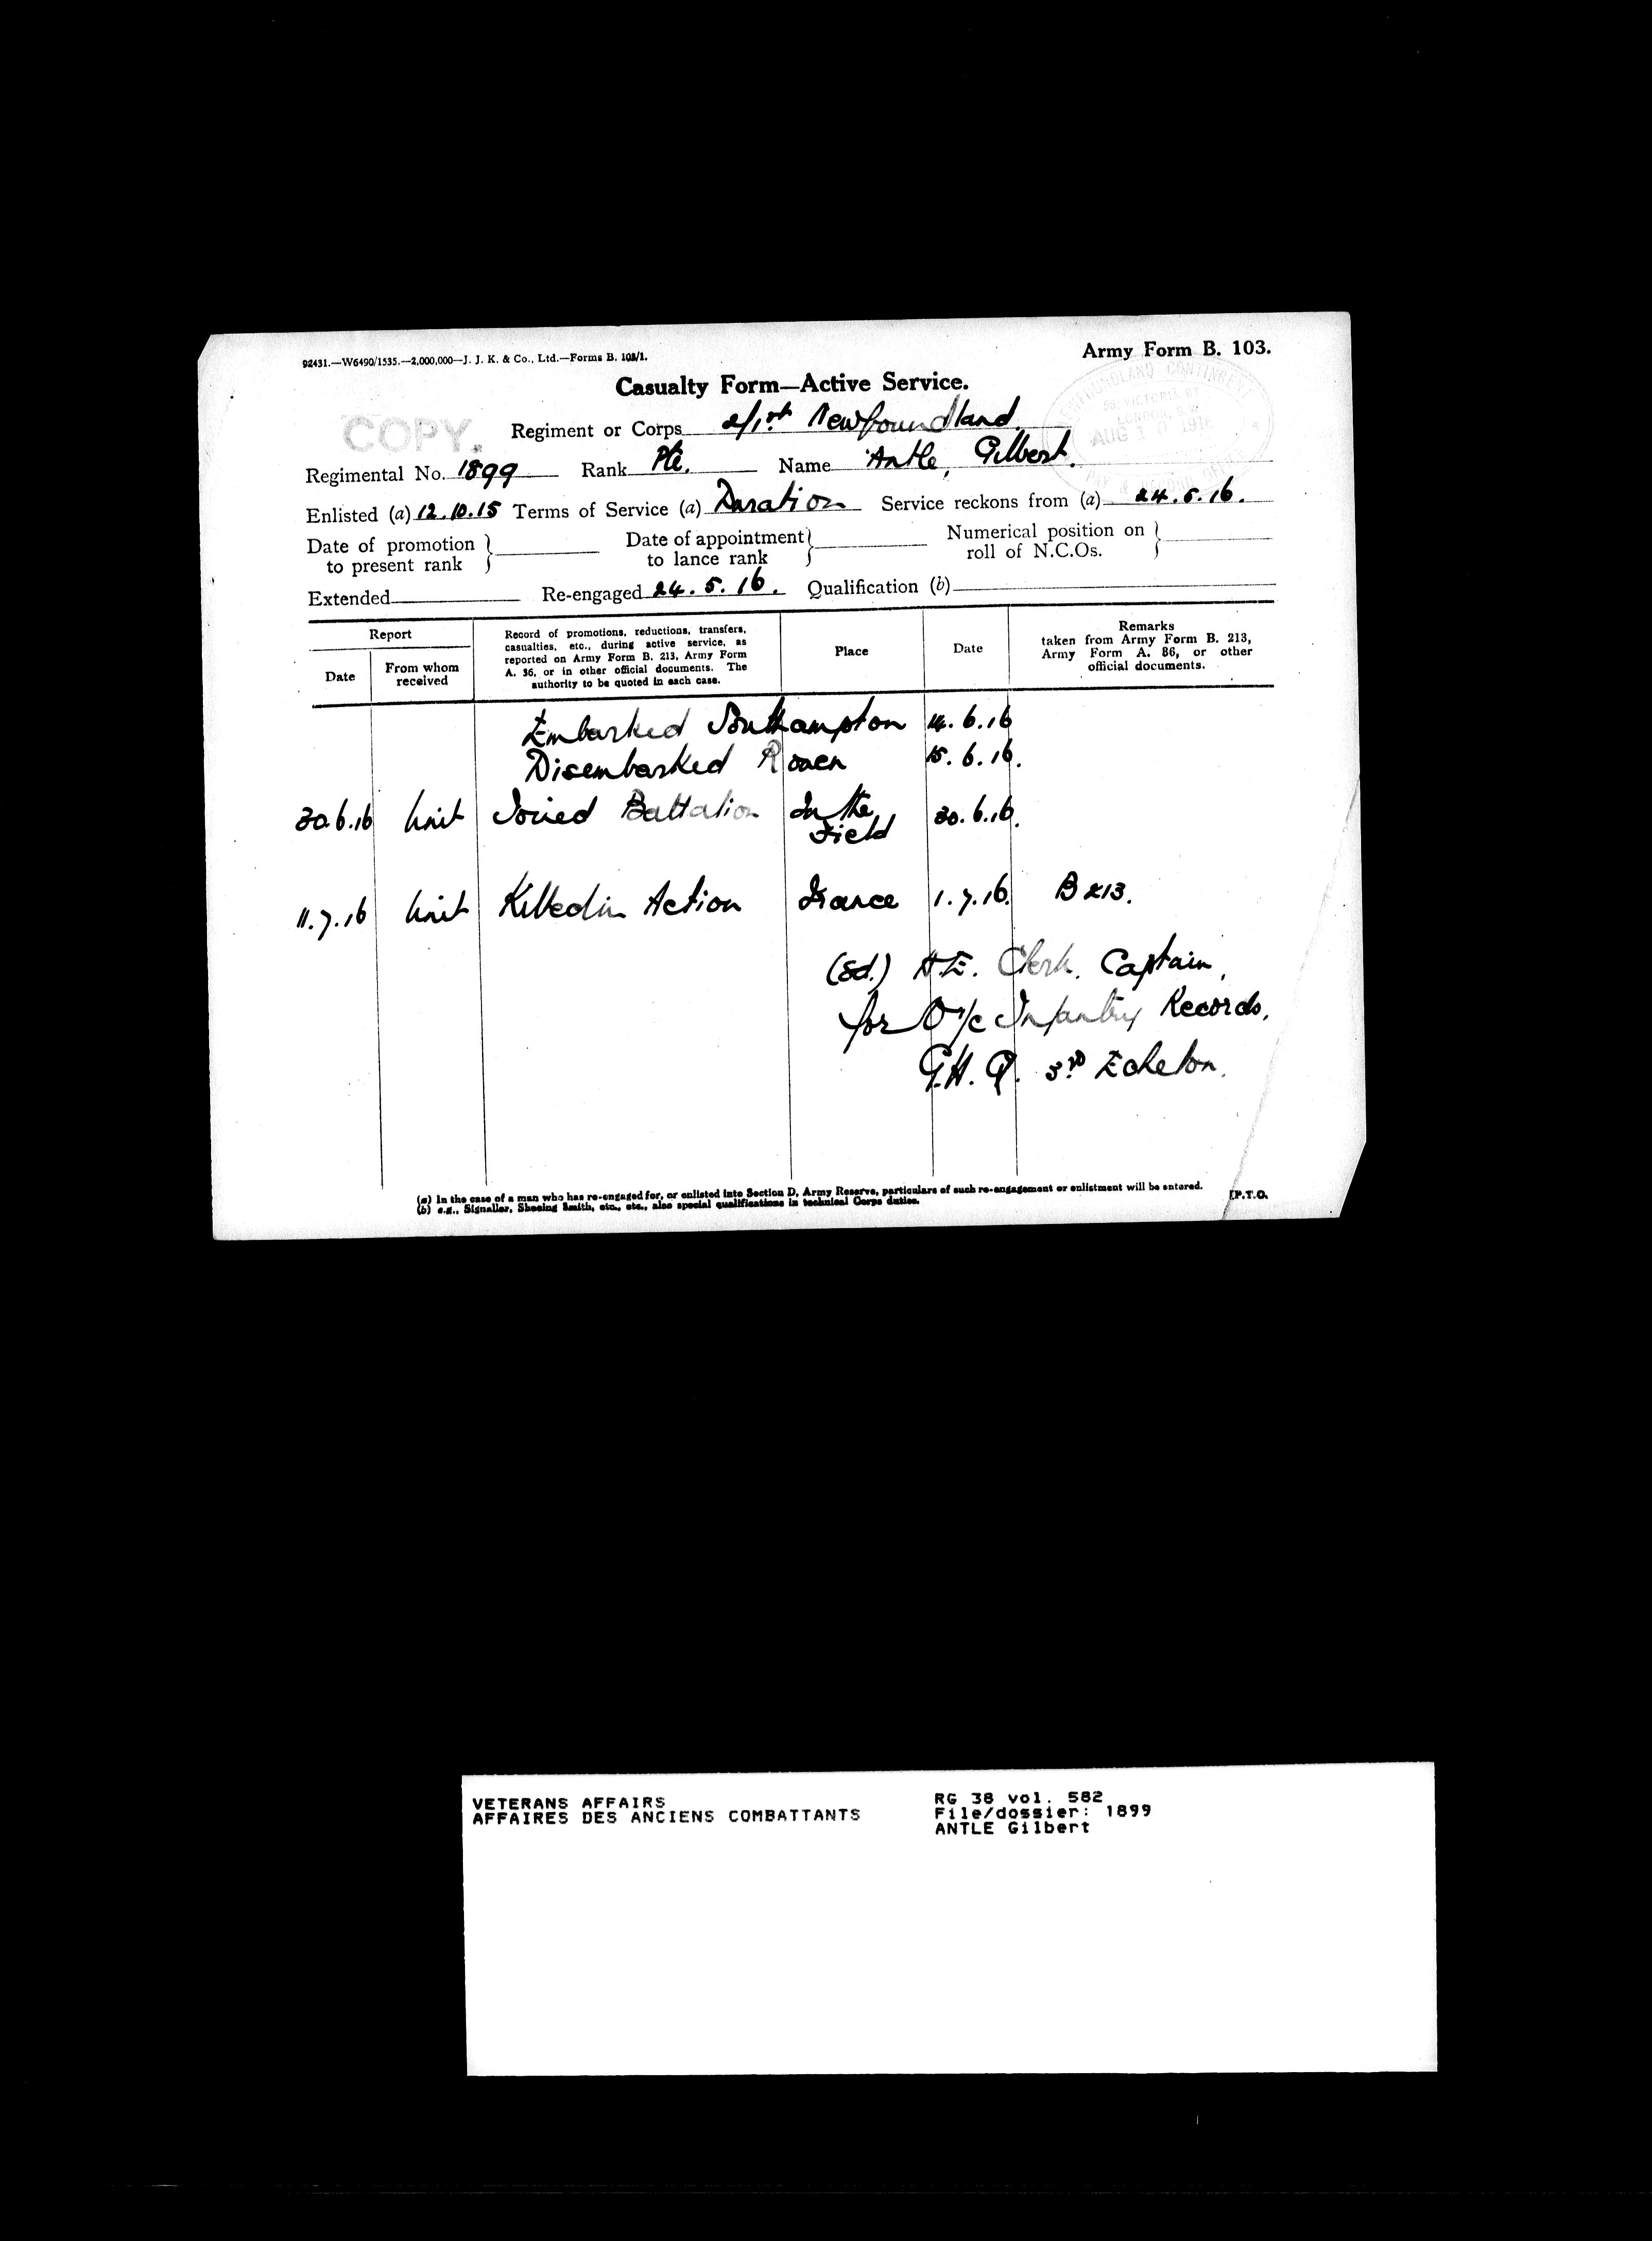 92431.—W6490/1535.—2,000,000—J. J. K. & Co., Ltd.—Forms B. 103/1.
Army Form B. 103.
Casualty Form—Active Service.
COPY.
NEWFOUNDLAND CONTINGENT
58, VICTORIA ST
LONDON, S.W.
AUG 10 1916
PAY & RECORD OFFICE
Regiment or Corps 2/1st Newfoundland.
Regimental No. 1899 Rank Pte. Name Antle, Gilbert.
Enlisted (a) 12.10.15 Terms of Service (a) Duration Service reckons from (a) 24.5.16.
Date of promotion to present rank
Date of appointment to lance rank
Numerical position on roll of N.C.Os.
Extended Re-engaged 24.5.16. Qualification (b)
Report
Date
From whom received
Record of promotions, reductions, transfers, casualties, etc., during active service, as reported on Army Form B. 213, Army Form A. 36, or in other official documents. The authority to be quoted in each case.
Place
Date
Remarks taken from Army Form B. 213, Army Form A. 36, or other official documents.
Embarked Southampton 14.6.16
Disembarked Rouen 15.6.16.
30.6.16 Unit Joined Battalion In the Field 30.6.16.
11.7.16 Unit Killed in Action France 1.7.16. B 213.
(Sd.) H.E. Clerk. Captain,
for O i/c Infantry Records,
G.H.Q. 3rd Echelon.
(a) In the case of a man who has re-engaged for, or enlisted into Section D, Army Reserve, particulars of such re-engagement or enlistment will be entered.
(b) e.g., Signaller, Shoeing Smith, etc., etc., also special qualifications in technical Corps duties.
[P.T.O.
VETERANS AFFAIRS
AFFAIRES DES ANCIENS COMBATTANTS
RG 38 vol. 582
File/dossier: 1899
ANTLE Gilbert